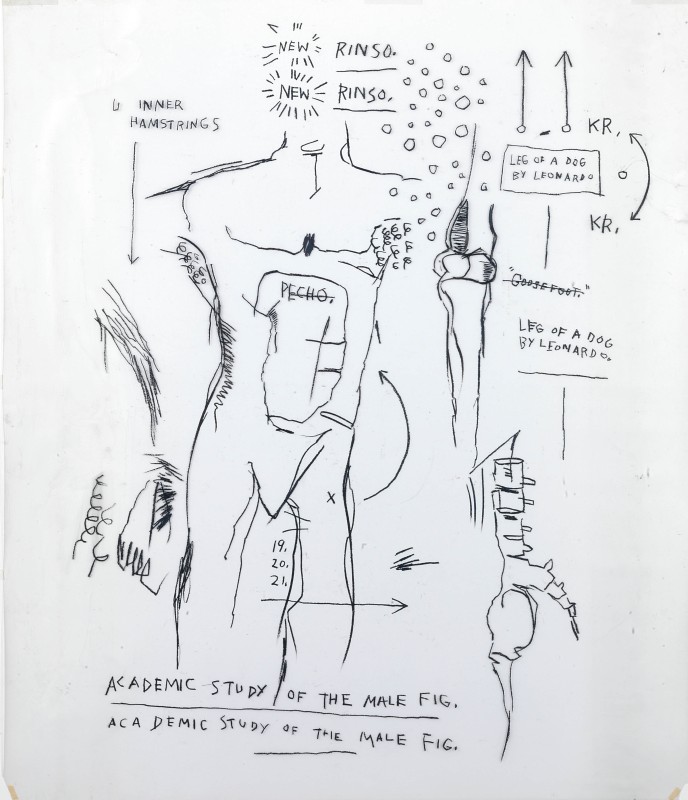 NEW RINSO.
NEW RINSO.
4 INNER
HAMSTRINGS
KR.
LEG OF A DOG
BY LEONARDO
KR.
PECHO.
"GOOSEFOOT."
LEG OF A DOG
BY LEONARDO.
X
19.
20.
21.
ACADEMIC STUDY OF THE MALE FIG.
ACADEMIC STUDY OF THE MALE FIG.